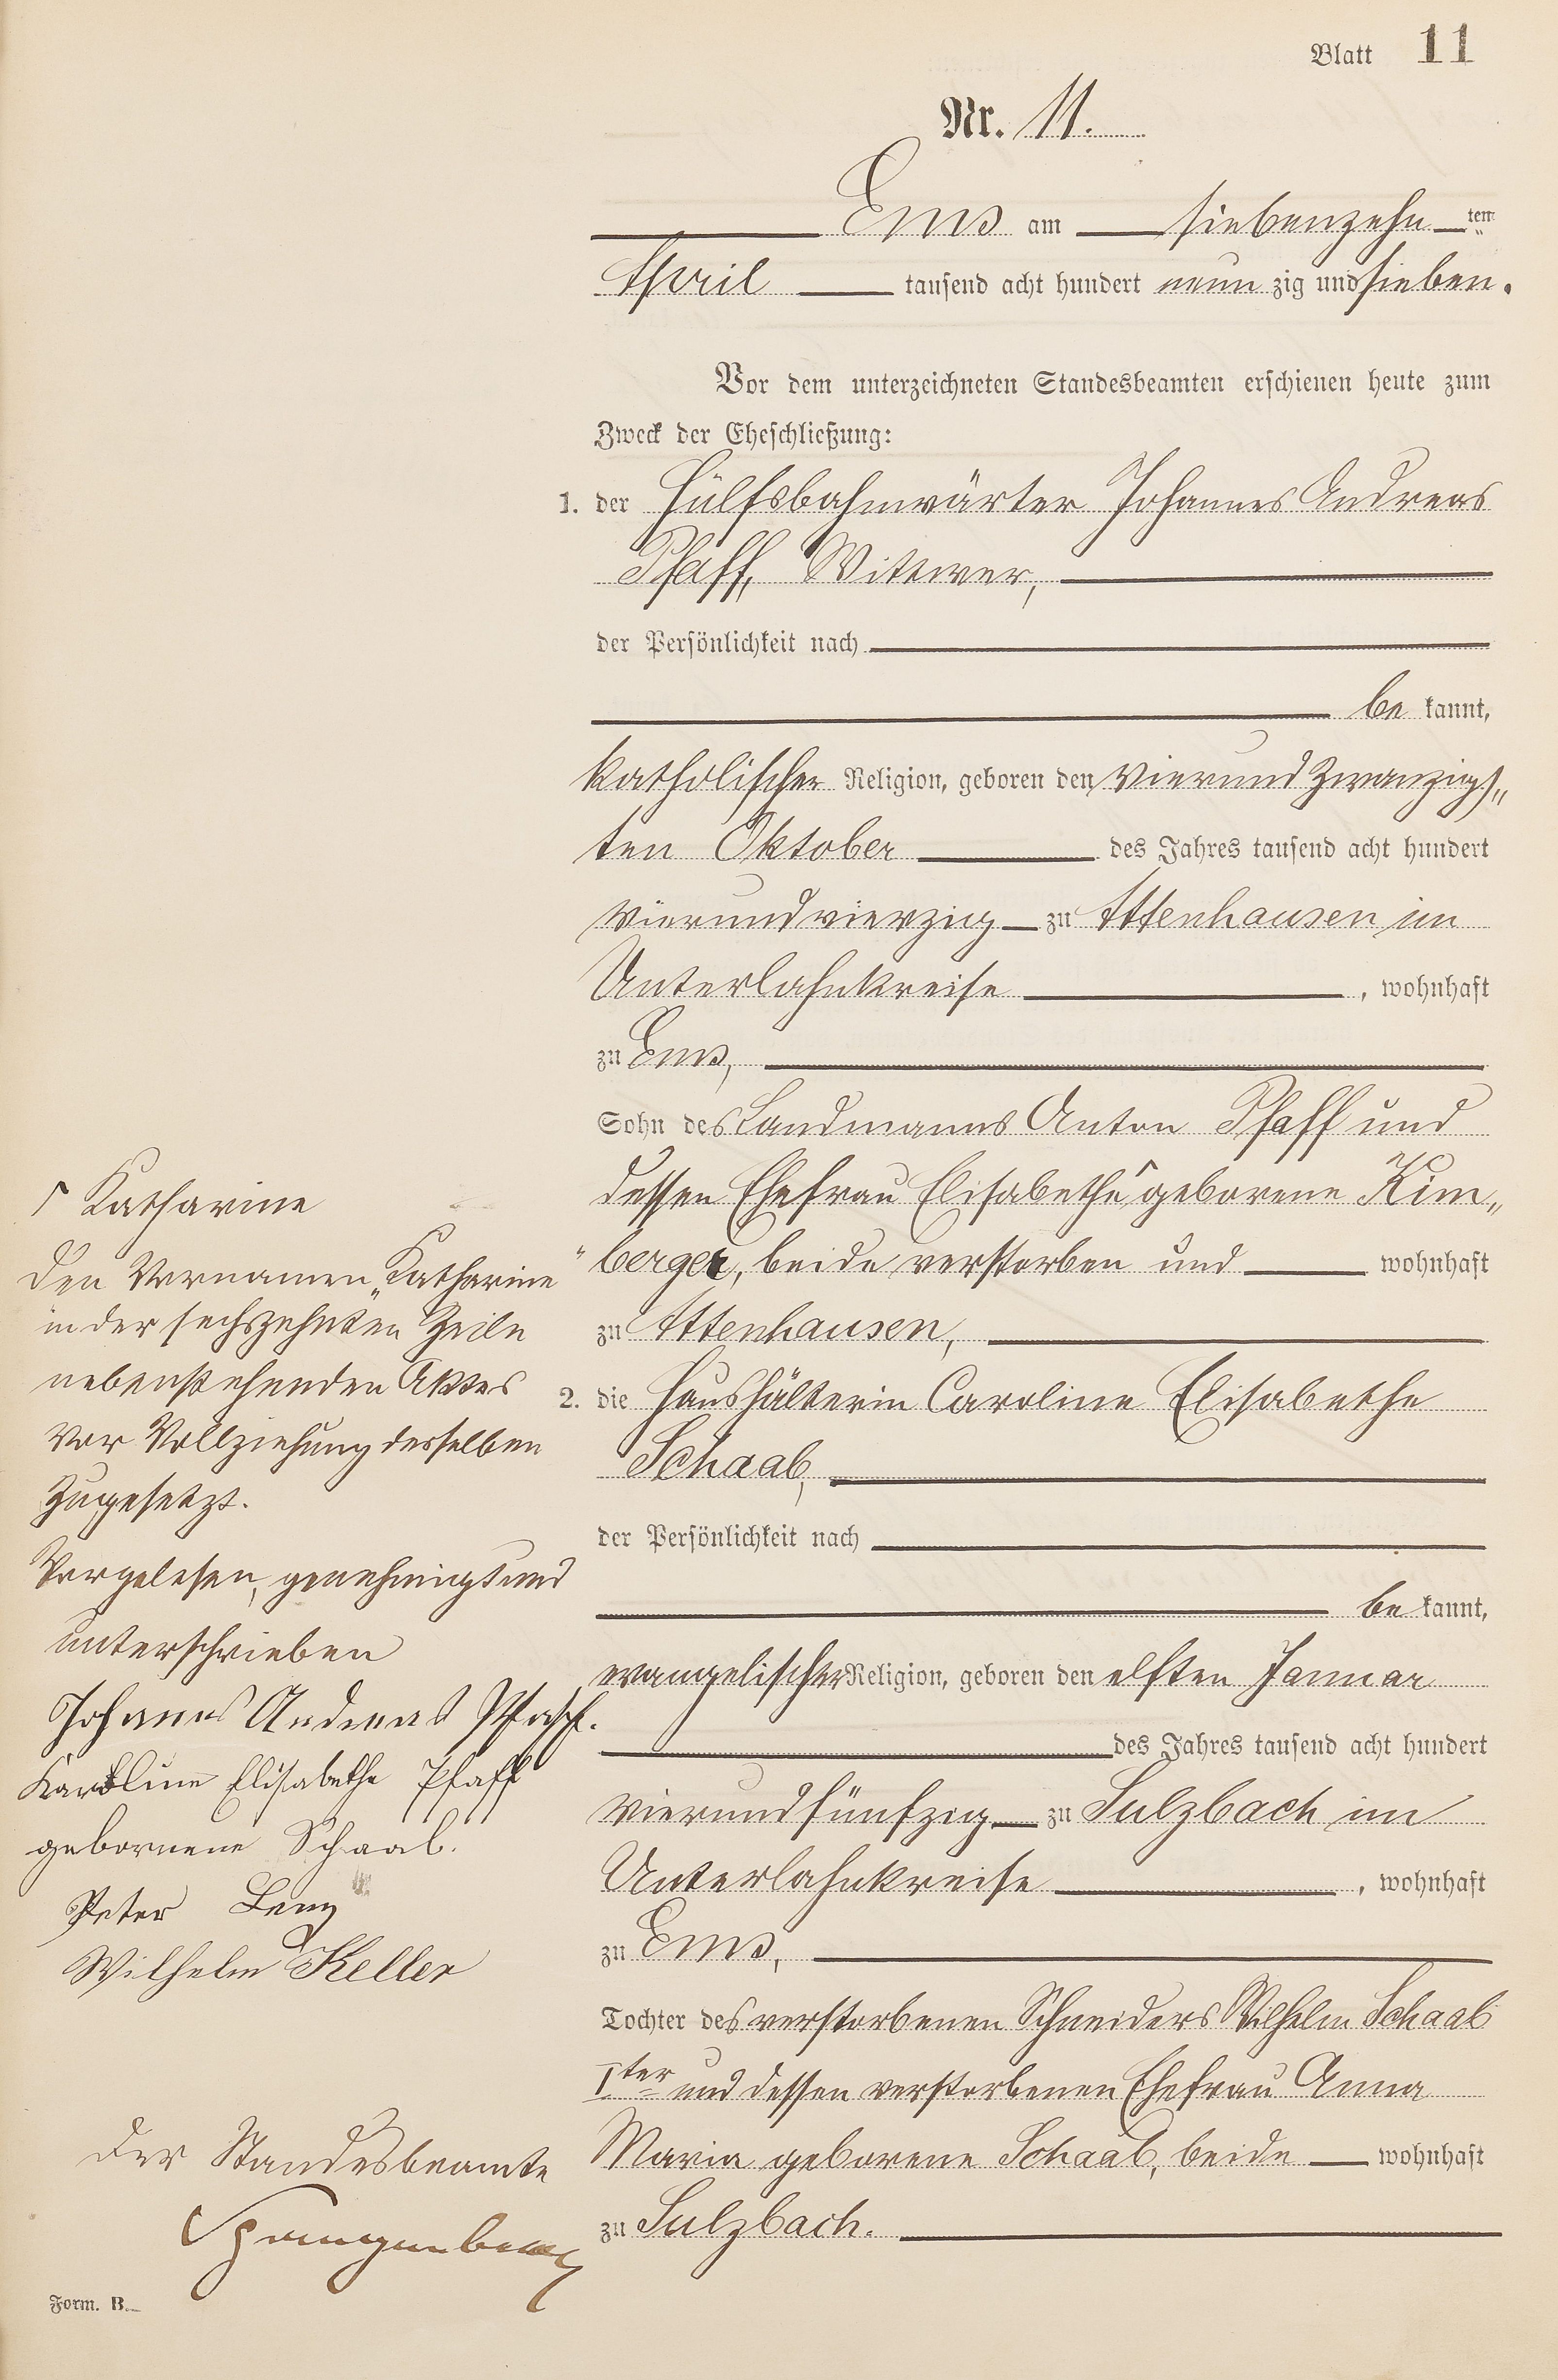 Blatt 11
Nr. 11.
Ems am siebenzehn ten
April tausend acht hundert neun zig und sieben.
Vor dem unterzeichneten Standesbeamten erschienen heute zum
Zweck der Eheschließung:
1. der Hülfsbahnwärter Johannes Andreas
Pfaff, Wittwer,
der Persönlichkeit nach
be kannt,
katholischer Religion, geboren den vierund zwanzigs„
ten Oktober des Jahres tausend acht hundert
vierundvierzig zu Attenhausen im
Unterlahnkreise , wohnhaft
zu Ems,
Sohn des Landmanns Anton Pfaff und
dessen Ehefrau Elisabethe ┌ geborene Kim„
"berger, beide verstorben und wohnhaft
zu Attenhausen,
2. die Haushälterin Caroline Elisabethe
Schaab,
der Persönlichkeit nach
be kannt,
evangelischer Religion, geboren den elften Januar
des Jahres tausend acht hundert
vierundfünfzig zu Sulzbach im
Unterlahnkreise , wohnhaft
zu Ems,
Tochter des verstorbenen Schneiders Wilhelm Schaab
Iter und dessen verstorbenen Ehefrau Anna
Maria geborene Schaab, beide wohnhaft
zu Sulzbach.
┌ Katharine
Den Vornamen „Katharine
in der sechszehnten Zeile
nebenstehenden Aktes
vor Vollziehung desselben
zugesetzt.
Vorgelesen, genehmigt und
unterschrieben
Johannes Andreas Pfaff.
Karoline Elisabethe Pfaff
gebornene Schaab.
Peter Lenz
Wilhelm Keller
Der Standesbeamte
Spangenberg
Form. B.